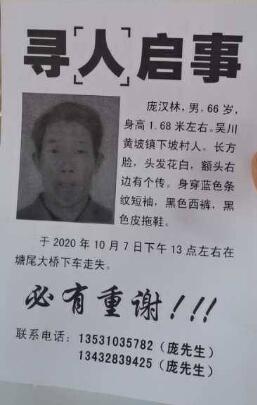 寻[人]启事
庞汉林，男，66岁，
身高1.68米左右。吴川
黄坡镇下坡村人。长方
脸，头发花白，额头右
边有个传。身穿蓝色条
纹短袖，黑色西裤，黑
色皮拖鞋。
于2020年10月7日下午13点左右在
塘尾大桥下车走失。
必有重谢！！！
联系电话：13531035782（庞先生）
13432839425（庞先生）